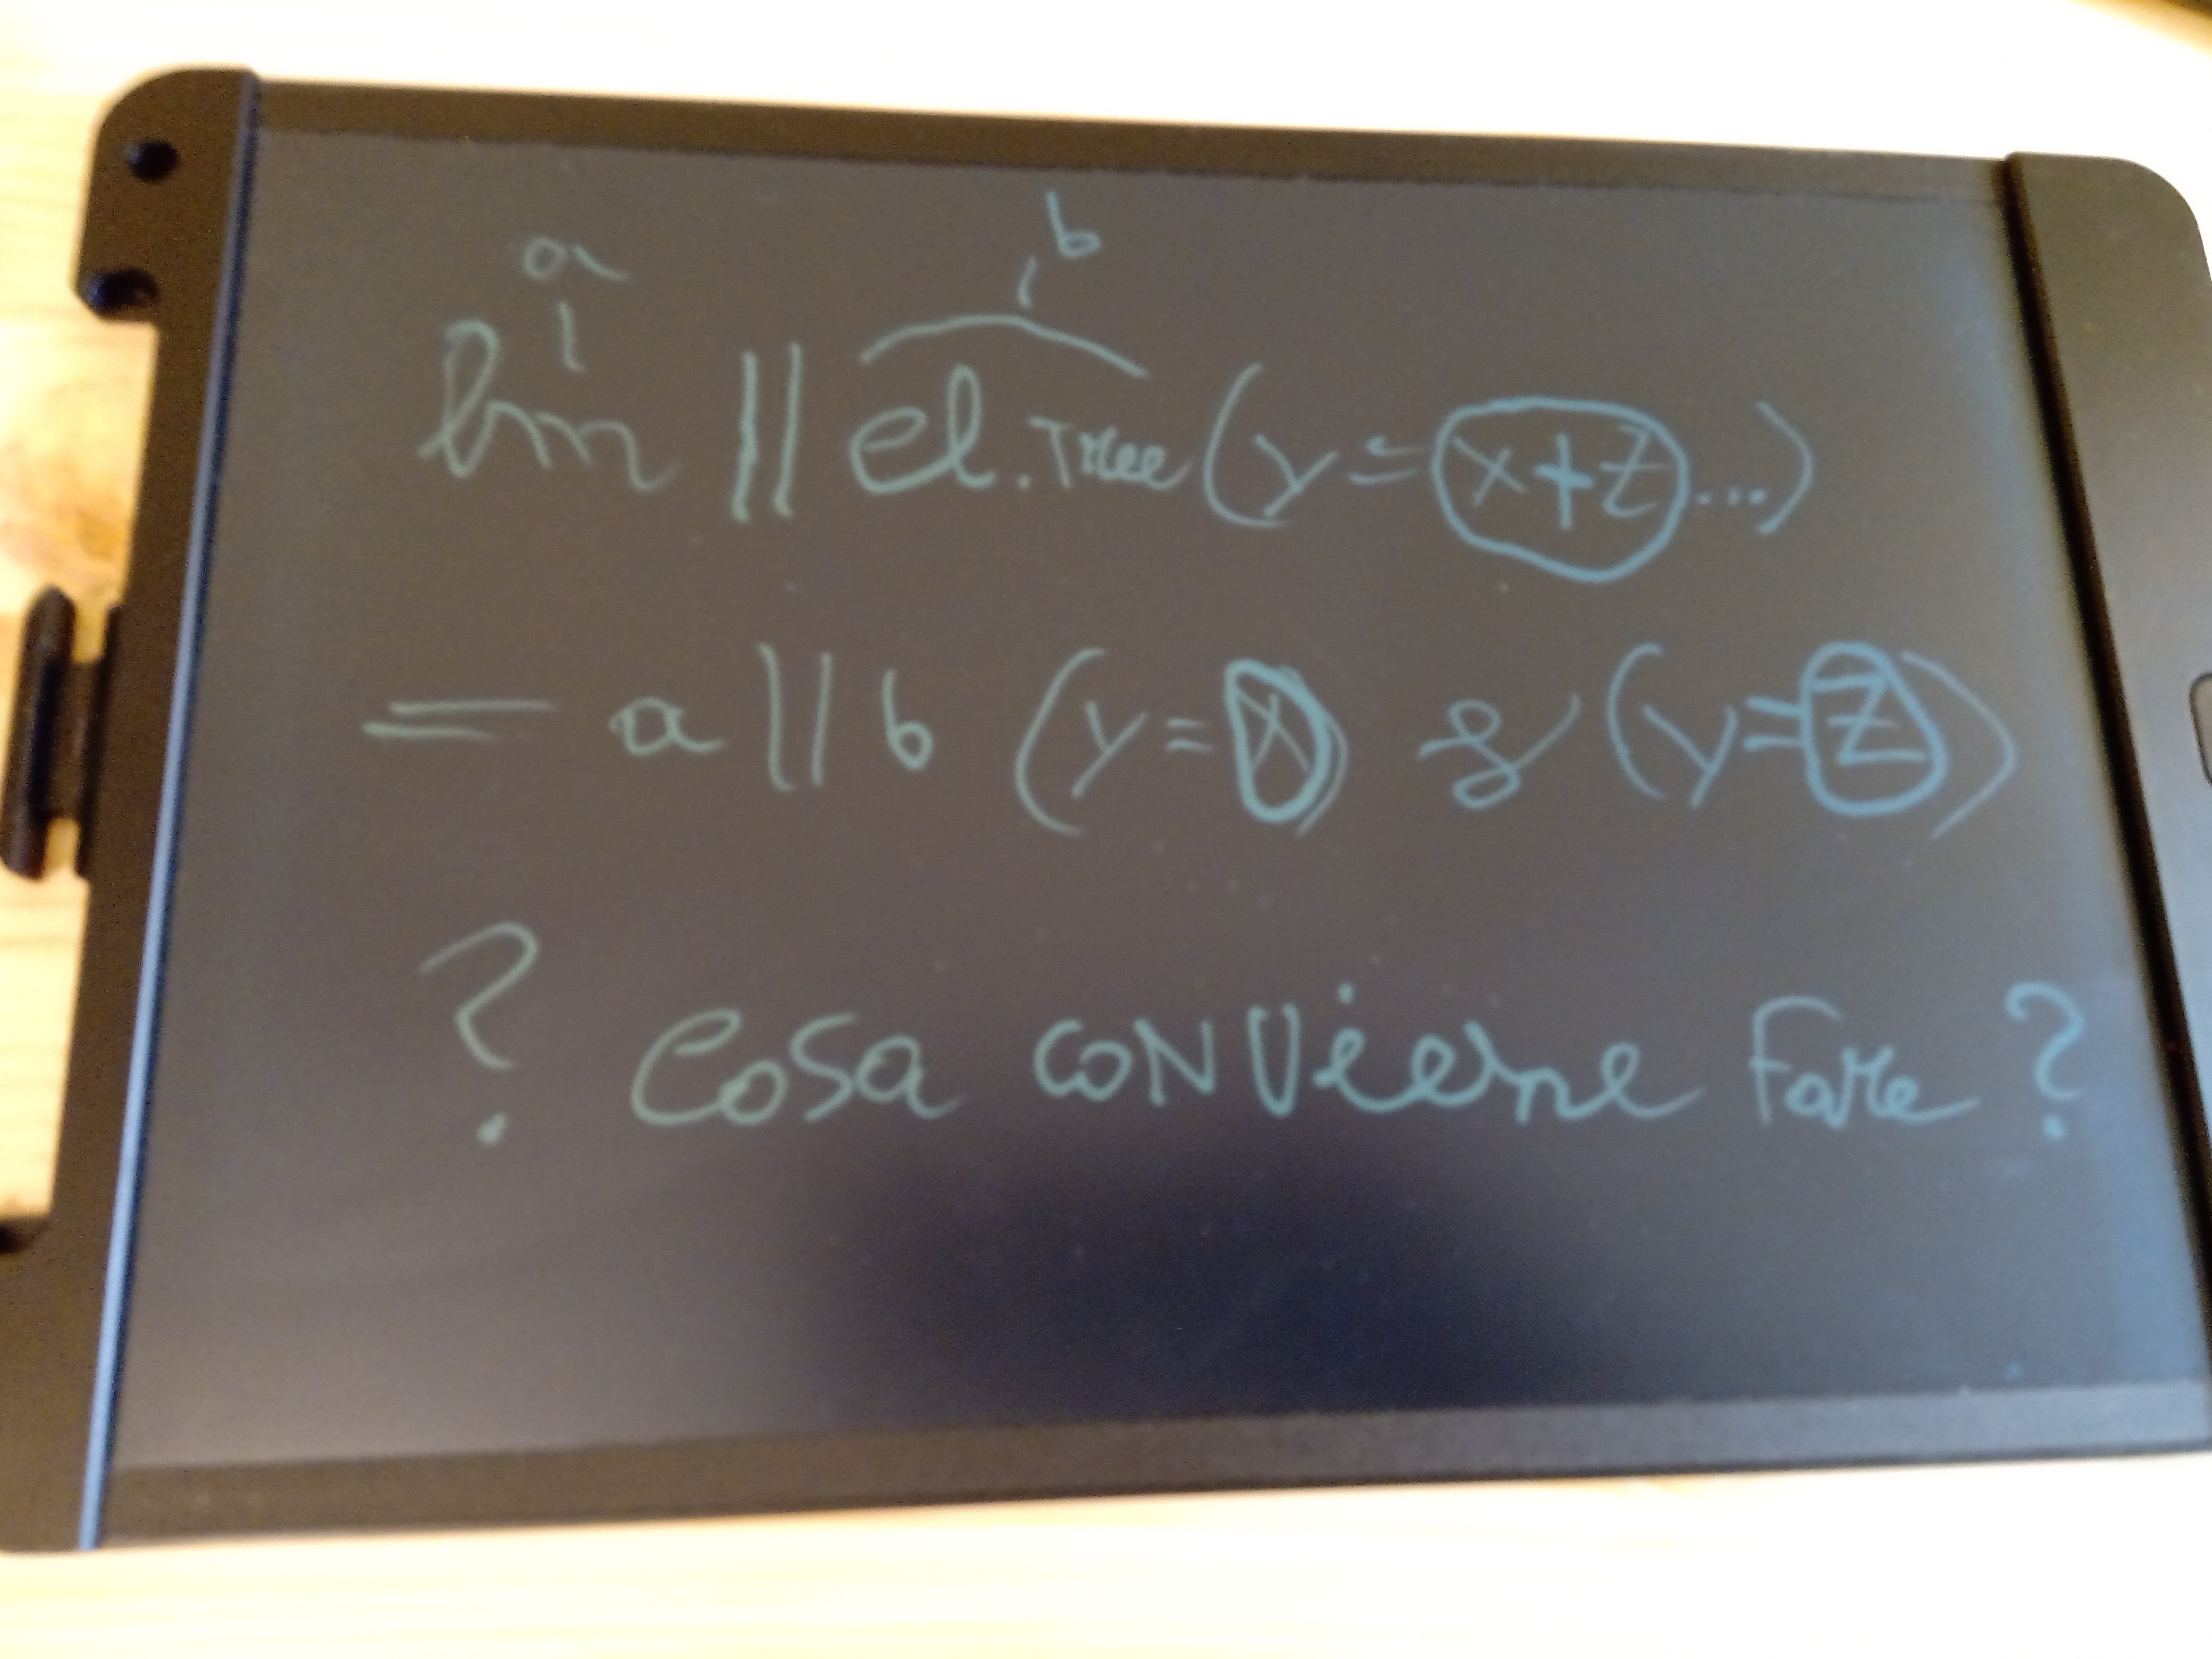 a b
lm || el.Tree (y = x+z ...)
= a || b (y = x) & (y = z)
? Cosa conviene fare ?